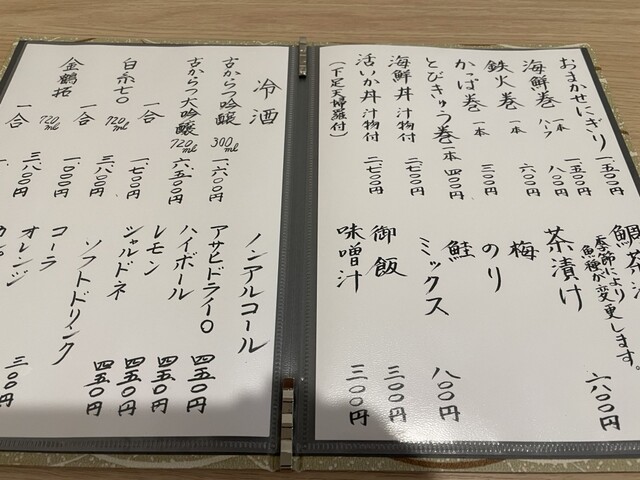 おまかせにぎり 一、五〇〇円
海鮮巻 一本 一、五〇〇円
ハーフ 八〇〇円
鉄火巻 一本 六〇〇円
かっぱ巻 一本 三〇〇円
とびきゅう巻 一本 四〇〇円
海鮮丼 汁物付 二、七〇〇円
活いか丼 汁物付 二、七〇〇円
(下足天婦羅付)
鯛茶漬
季節により
魚種が変更します。
茶漬け 六〇〇円
梅
のり
鮭
ミックス 八〇〇円
御飯 三〇〇円
味噌汁 三〇〇円
冷酒
古からつ吟醸 300ml 一、六〇〇円
古からつ大吟醸 720ml 六、五〇〇円
白糸70 一合 一、七〇〇円
720ml 三、八〇〇円
金鶴拓 一合 一、〇〇〇円
720ml 三、八〇〇円
一合
ノンアルコール
アサヒドライ〇 四五〇円
ハイボール 四五〇円
レモン 四五〇円
シャルドネ 四五〇円
ソフトドリンク
コーラ
オレンジ 三〇〇円